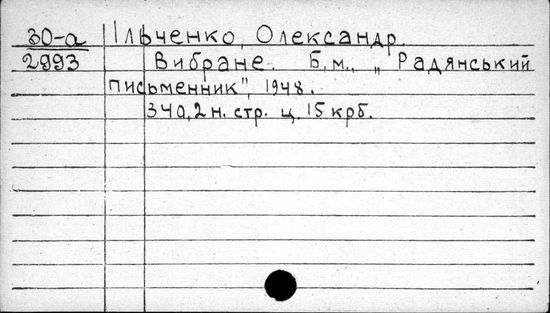 30-а Ільченко, Олександр.
2993 Вибране. Б.м., „Радянський
письменник", 1948.
340,2 н. стр. ц. 15 крб.